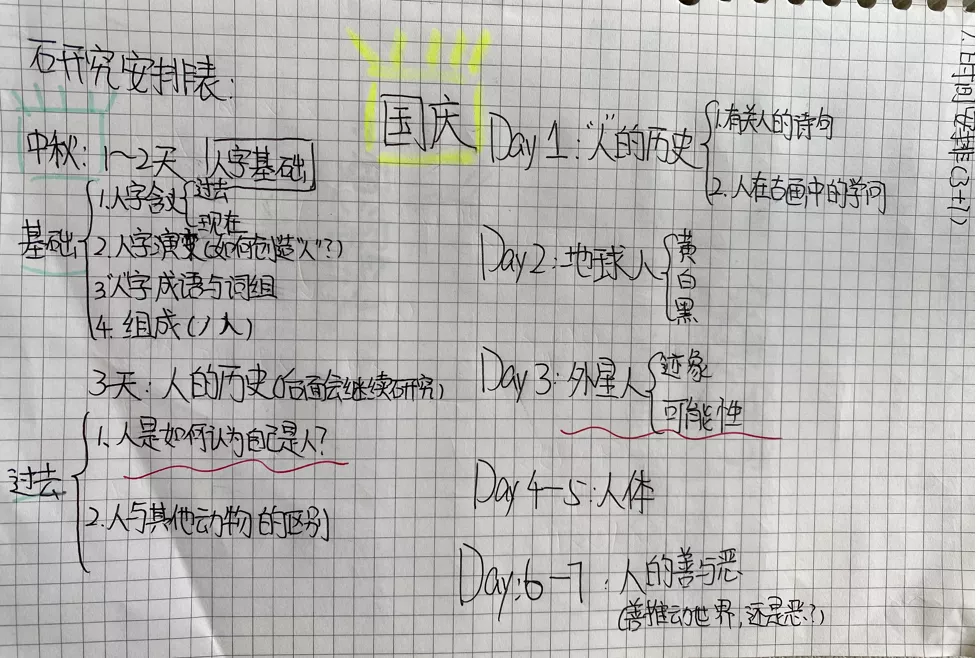 研究安排表:
中秋: 1~2天 人字基础
基础
1.人字含义
过去
现在
2.人字演变(如何创造"人"?)
3."人"字成语与词组
4.组成(丿乀)
3天:人的历史(后面会继续研究)
过去
1.人是如何认为自己是人?
2.人与其他动物的区别
国庆
Day 1:"人"的历史
1.有关人的诗句
2.人在古画中的学问
Day2:地球人
黄
白
黑
Day 3:外星人
迹象
可能性
Day 4-5:人体
Day:6-7:人的善与恶
(善推动世界,还是恶?)
7.时间安排(3+7)